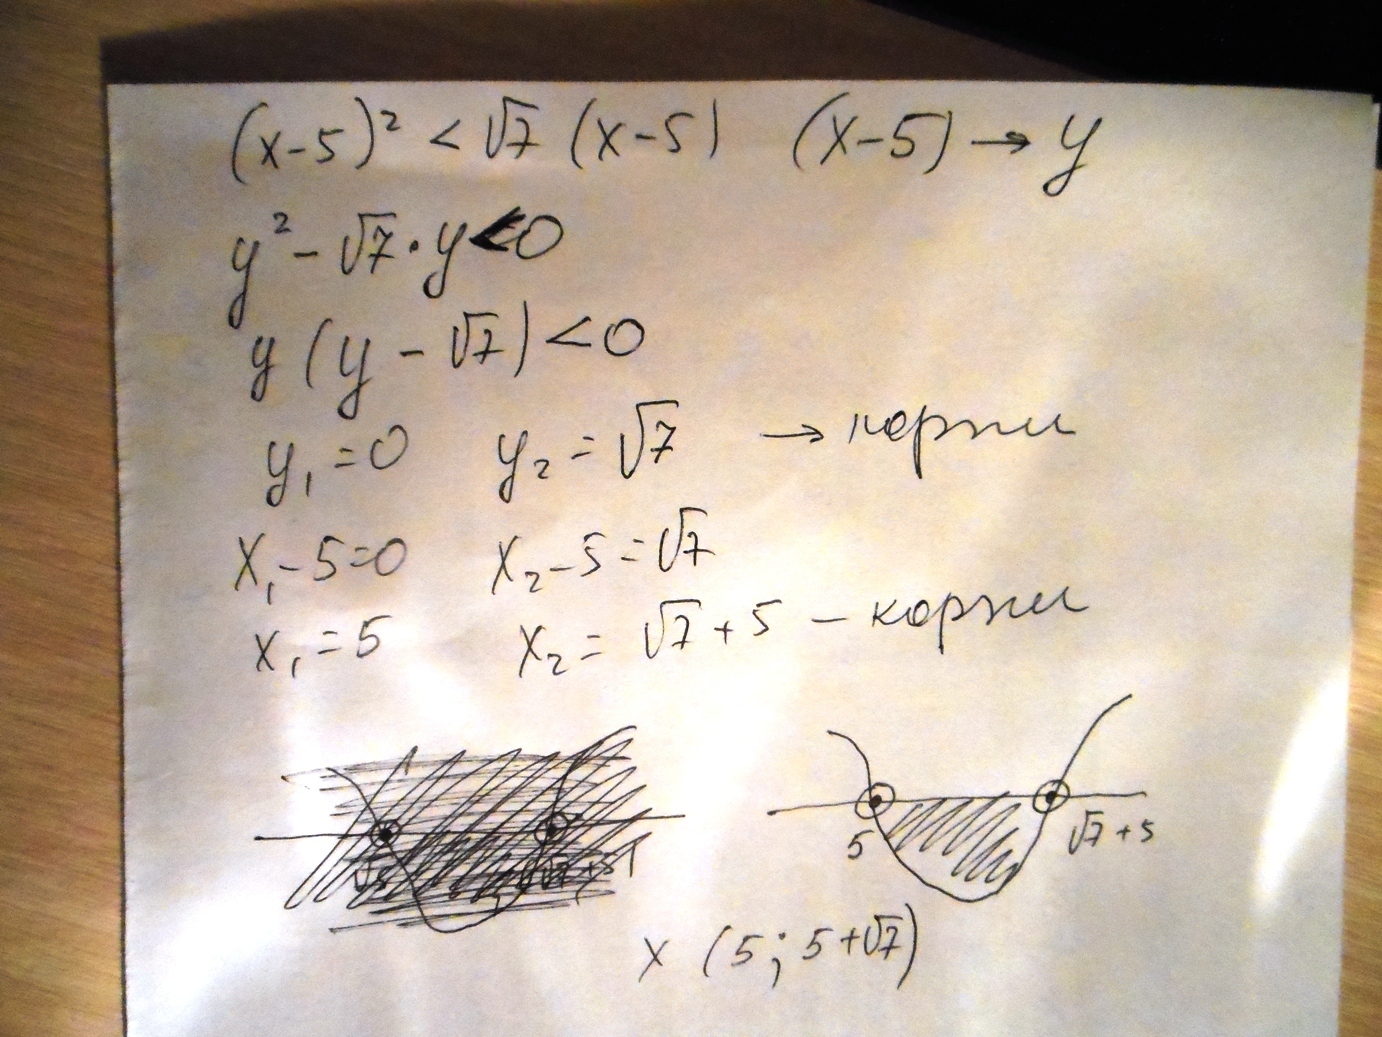 (x-5)² < √7 (x-5) (x-5) → y
y² - √7 · y < 0
y (y - √7) < 0
y₁ = 0 y₂ = √7 → корни
x₁ - 5 = 0 x₂ - 5 = √7
x₁ = 5 x₂ = √7 + 5 - корни
5 √7 + 5
x (5; 5 + √7)